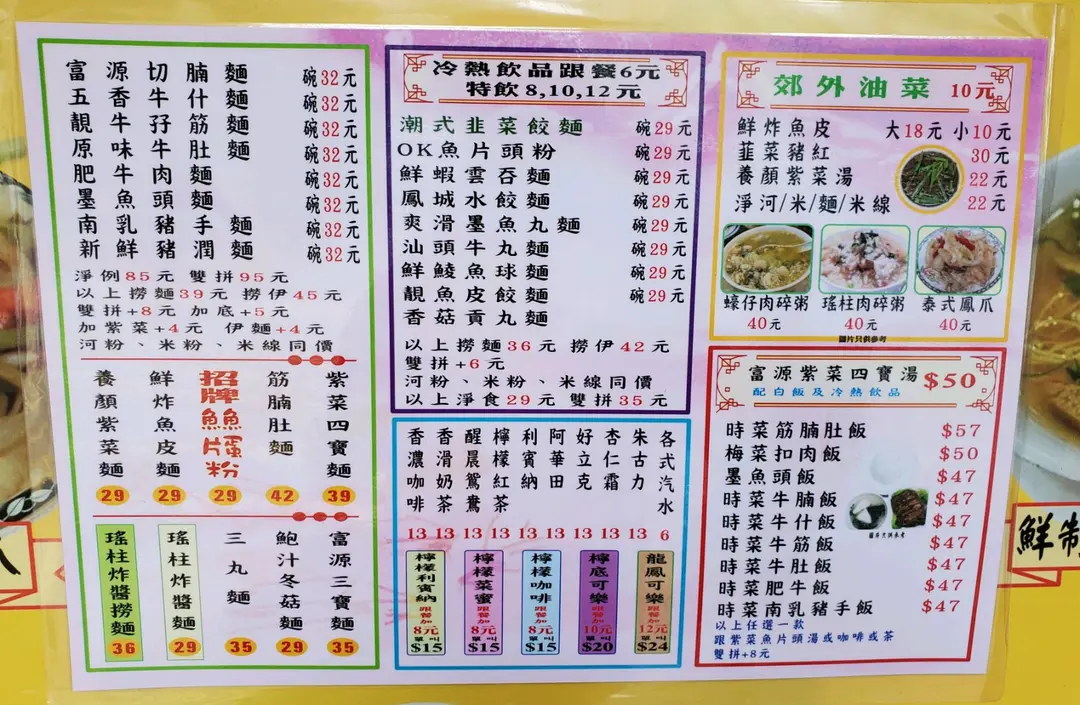 富源切腩麵 碗32元
五香牛什麵 碗32元
靚牛孖筋麵 碗32元
原味牛肚麵 碗32元
肥牛肉麵 碗32元
墨魚頭麵 碗32元
南乳豬手麵 碗32元
新鮮豬潤麵 碗32元
淨例85元 雙拼95元
以上撈麵39元 撈伊45元
雙拼+8元 加底+5元
加紫菜+4元 伊麵+4元
河粉、米粉、米線同價
養顏紫菜麵 29
鮮炸魚皮麵 29
招牌鱼片蛋粉 29
筋腩肚麵 42
紫菜四寶麵 39
瑤柱炸醬撈麵 36
瑤柱炸醬麵 29
三丸麵 35
鮑汁冬菇麵 29
富源三寶麵 35
冷熱飲品跟餐6元
特飲8,10,12元
潮式韭菜餃麵 碗29元
OK魚片頭粉 碗29元
鮮蝦雲吞麵 碗29元
鳳城水餃麵 碗29元
爽滑墨魚丸麵 碗29元
汕頭牛丸麵 碗29元
鮮鯪魚球麵 碗29元
靚魚皮餃麵 碗29元
香菇貢丸麵
以上撈麵36元 撈伊42元
雙拼+6元
河粉、米粉、米線同價
以上淨食29元 雙拼35元
香濃咖啡 13
香滑奶茶 13
醒晨鴛鴦 13
檸檬紅茶 13
利賓納 13
阿華田 13
好立克 13
杏仁霜 13
朱古力 13
各式汽水 6
檸檬利賓納 跟餐加8元 單叫$15
檸檬菜蜜 跟餐加8元 單叫$15
檸檬咖啡 跟餐加8元 單叫$15
檸底可樂 跟餐加10元 單叫$20
龍鳳可樂 跟餐加12元 單叫$24
郊外油菜 10元
鮮炸魚皮 大18元 小10元
韮菜豬紅 30元
養顏紫菜湯 22元
淨河/米/麵/米線 22元
蠔仔肉碎粥 40元
瑤柱肉碎粥 40元
泰式鳳爪 40元
圖片只供參考
富源紫菜四寶湯 $50
配白飯及冷熱飲品
時菜筋腩肚飯 $57
梅菜扣肉飯 $50
墨魚頭飯 $47
時菜牛腩飯 $47
時菜牛什飯 $47
時菜牛筋飯 $47
時菜牛肚飯 $47
時菜肥牛飯 $47
時菜南乳豬手飯 $47
以上任選一款
跟紫菜魚片頭湯或咖啡或茶
雙拼+8元
鮮制